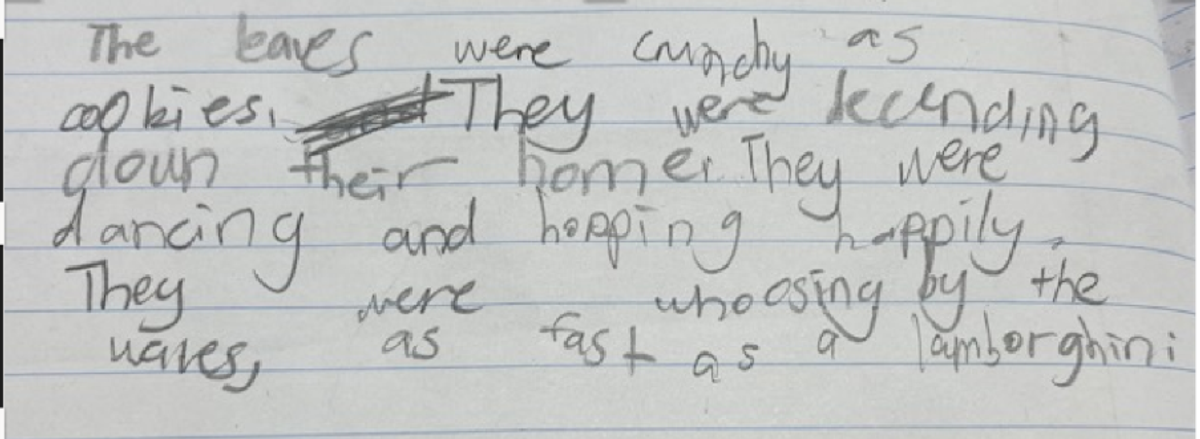 The leaves were crunchy as
cookies. They were decending
down their home. They were
dancing and hopping happily.
They were whoosing by the
waves, as fast as a lamborghini